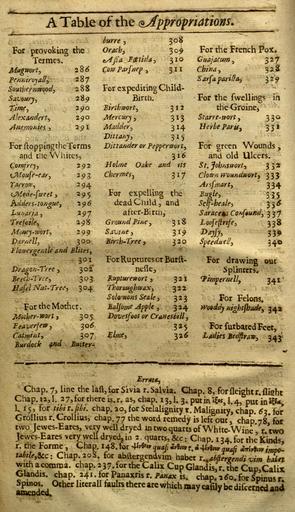 A Table of the Appropriations.
For provoking the
Termes.
Mugwort, 286
Pennyroyall, 287
Southernwood, 288
Savoury, 289
Time, 290
Alexanders, 290
Anemonies, 291
For stopping the Terms
and the Whites,
Comfrey, 292
Mouse-ear, 293
Yarrow, 294
Meda-sweet, 295
Adders-tongue, 296
Lunaria, 297
Trefoile, 298
Money-wort, 299
Darnell, 300
Flowergentle and Blites,
301
Dragon-Tree, 302
Beech-Tree, 303
Hasel Nut-Tree, 304
For the Mother.
Mother-wort, 305
Feaverfew, 306
Calamint, 307
Burdock and Butter-
burre, 308
Orach, 309
Assa Fœtida, 310
Cow Parsnep, 311
For expediting Child-
Birth.
Birthwort, 312
Mercury, 313
Madder, 314
Dittany, 315
Dittander or Pepperwort,
316
Holme Oake and its
Chermes, 317
For expelling the
dead Child, and
after-Birth,
Ground Pine, 318
Savine, 319
Birch-Tree, 320
For Ruptures or Burst-
nesse,
Rupturewort, 321
Thoroughwax, 322
Solomons Seale, 323
Balsame Apple, 324
Dovesfoot or Cranesbill,
325
Elme, 326
For the French Pox.
Guajacum, 327
China, 328
Sarsa parilla, 329
For the swellings in
the Groine,
Starre-wort, 330
Herbe Paris, 331
For green Wounds,
and old Ulcers.
St. Johnswort, 332
Clown Woundwort, 333
Arssmart, 334
Bugle, 335
Self-heale, 336
Saracens Consound, 337
Loosestrife, 338
Daysy, 339
Speedwell, 340
For drawing out
Splinters.
Pimpernell, 341
For Felons,
Woddy nightshade, 342
For surbated Feet,
Ladies Bedstraw, 343
Errata,
Chap. 7, line the last, for Sivia r. Salvia. Chap. 8, for sleight r. slight
Chap. 12, l. 27, for there is, r. as, chap. 13, l. 3. put in l. 4, put in
l. 15, for sibi r. sibi. chap. 20, for Stelalignity r. Malignity, chap. 63, for
Crollius r. Crollius; chap. 77 the word remedy is left out, chap. 78, for
two Jewes-Eares, very well dryed in two quarts of White-Wine, r. two
Jewes-Eares very well dryed, in 2. quarts, &c; Chap. 134, for the Kinds,
r. the Forme, Chap. 148, for
&c; Chap. 208, for abstergendvim habet r. abstergendi vim habet
with a comma. chap. 237, for the Calix Cup Glandis, r. the Cup, Calix
Glandis. chap. 241. for Panaxris r. Panax is, chap, 260, for Spinus r.
Spinos. Other literall faults there are which may easily be discerned and
amended.